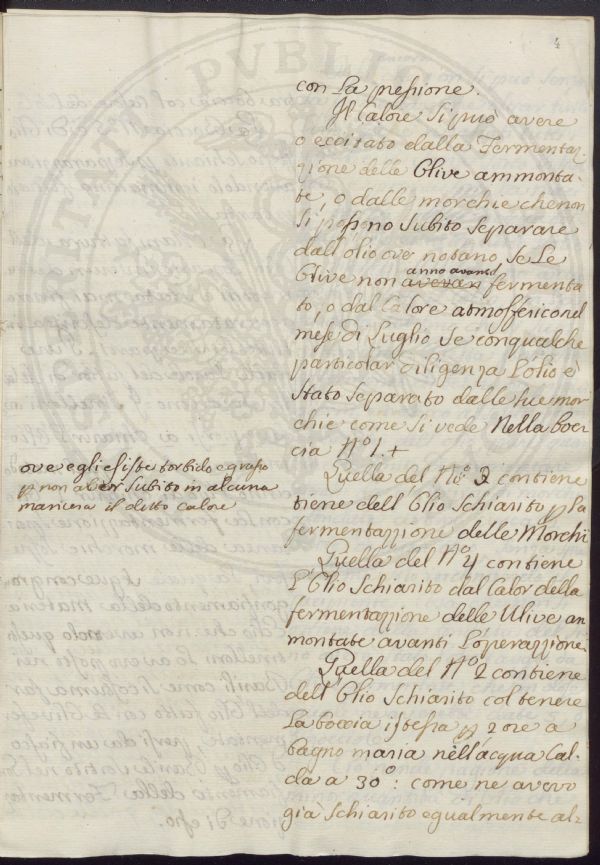 4
con La pressione.
Il Calore si può avere
o eccitato dalla Fermentaz-
zione delle Olive ammonta-
te, o dalle morchie che non
si possono subito separare
dall'olio ove notano, se Le
Olive non anno avanti fermenta
to, o dal Calore atmosferico nel
mese di Luglio se con qualche
particolar diligenza L'olio è
stato separato dalle sue mor
chie come si vede Nella boc
cia N.º 1. +
ove egli esiste torbido e grasso
p non aver subito in alcuna
maniera il detto calore
Quella del N.º 3 contiene
tiene dell'Olio Schiarito p La
fermentazzione delle Morchi
Quella del N.º 4 contiene
L'Olio Schiarito dal Calor della
fermentazzione delle Ulive am
montate avanti L'operazzione.
Quella del N.º 2 contiene
dell'Olio Schiarito col tenere
La boccia istessa p 2 ore a
bagno maria nell'acqua Cal-
da a 30º: come ne avevo
già Schiarito egualmente al-